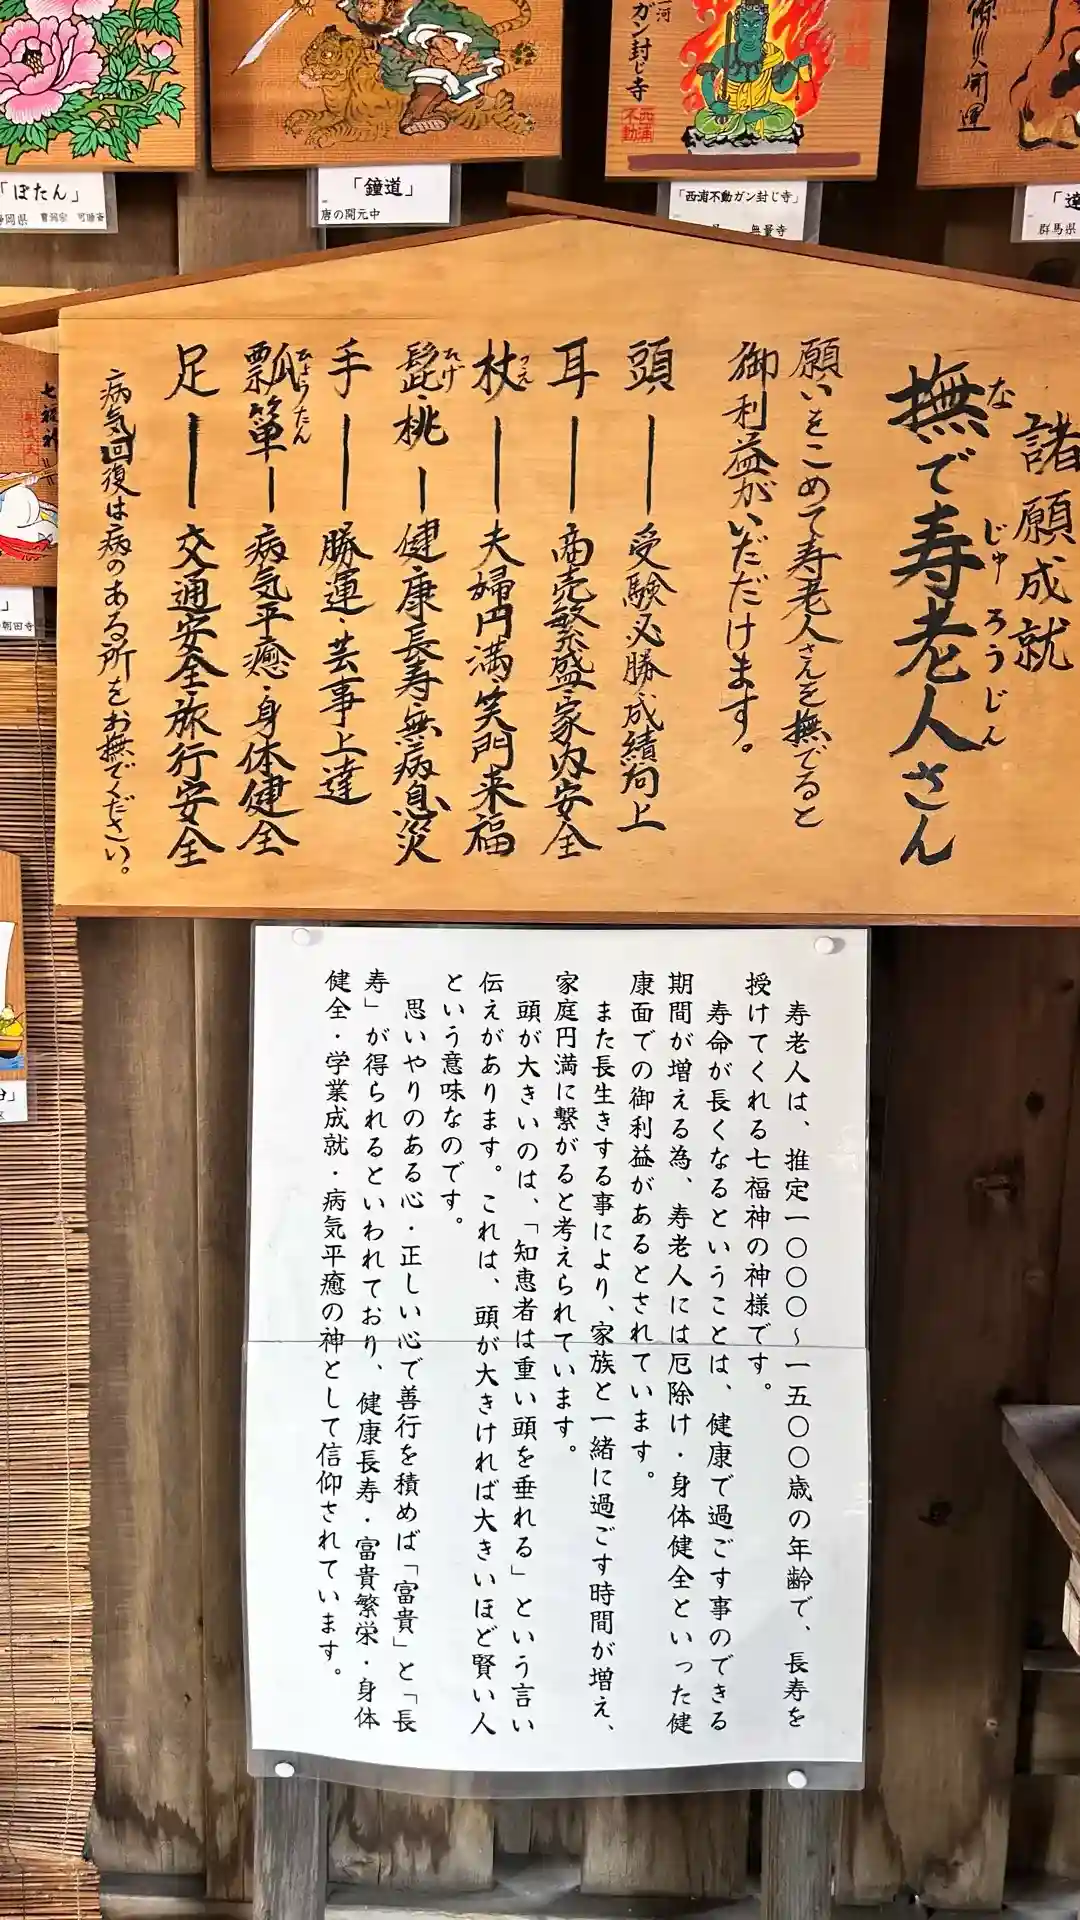 「ぼたん」
曹洞宗 可睡斎
「鐘道」
唐の開元中
ガン封じ寺
西浦
不動
「西浦不動ガン封じ寺」
無量寺
開運
群馬県
諸願成就
撫で寿老人さん
な
じゅ ろうじん
願いをこめて寿老人さんを撫でると
御利益がいただけます。
頭―受験必勝・成績向上
耳―商売繁盛・家内安全
杖―夫婦円満・笑門来福
つえ
髭・桃―健康長寿・無病息災
ひげ
手―勝運・芸事上達
瓢箪―病気平癒・身体健全
ひょうたん
足―交通安全・旅行安全
病気回復は病のある所を、お撫でください。
寿老人は、推定一〇〇〇~一五〇〇歳の年齢で、長寿を
授けてくれる七福神の神様です。
寿命が長くなるということは、健康で過ごす事のできる
期間が増える為、寿老人には厄除け・身体健全といった健
康面での御利益があるとされています。
また長生きする事により、家族と一緒に過ごす時間が増え、
家庭円満に繋がると考えられています。
頭が大きいのは、「知恵者は重い頭を垂れる」という言い
伝えがあります。これは、頭が大きければ大きいほど賢い人
という意味なのです。
思いやりのある心・正しい心で善行を積めば「富貴」と「長
寿」が得られるといわれており、健康長寿・富貴繁栄・身体
健全・学業成就・病気平癒の神として信仰されています。